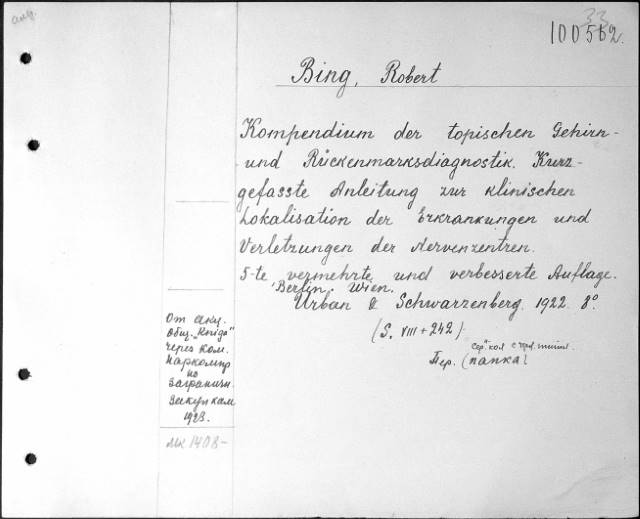 33
100562.
Bing, Robert
Kompendium der topischen Gehirn-
und Rückenmarksdiagnostik. Kurz-
gefasste Anleitung zur klinischen
Lokalisation der Erkrankungen und
Verletzungen der Nervenzentren.
5-te vermehrte und verbesserte Auflage.
Berlin. Wien.
Urban & Schwarzenberg. 1922. 8°.
(S. VIII + 242).
Пер. (папка)
От акц.
общ. „Книга"
через ком.
Наркомпр
по
заграничн.
закупкам
1923.
1408-